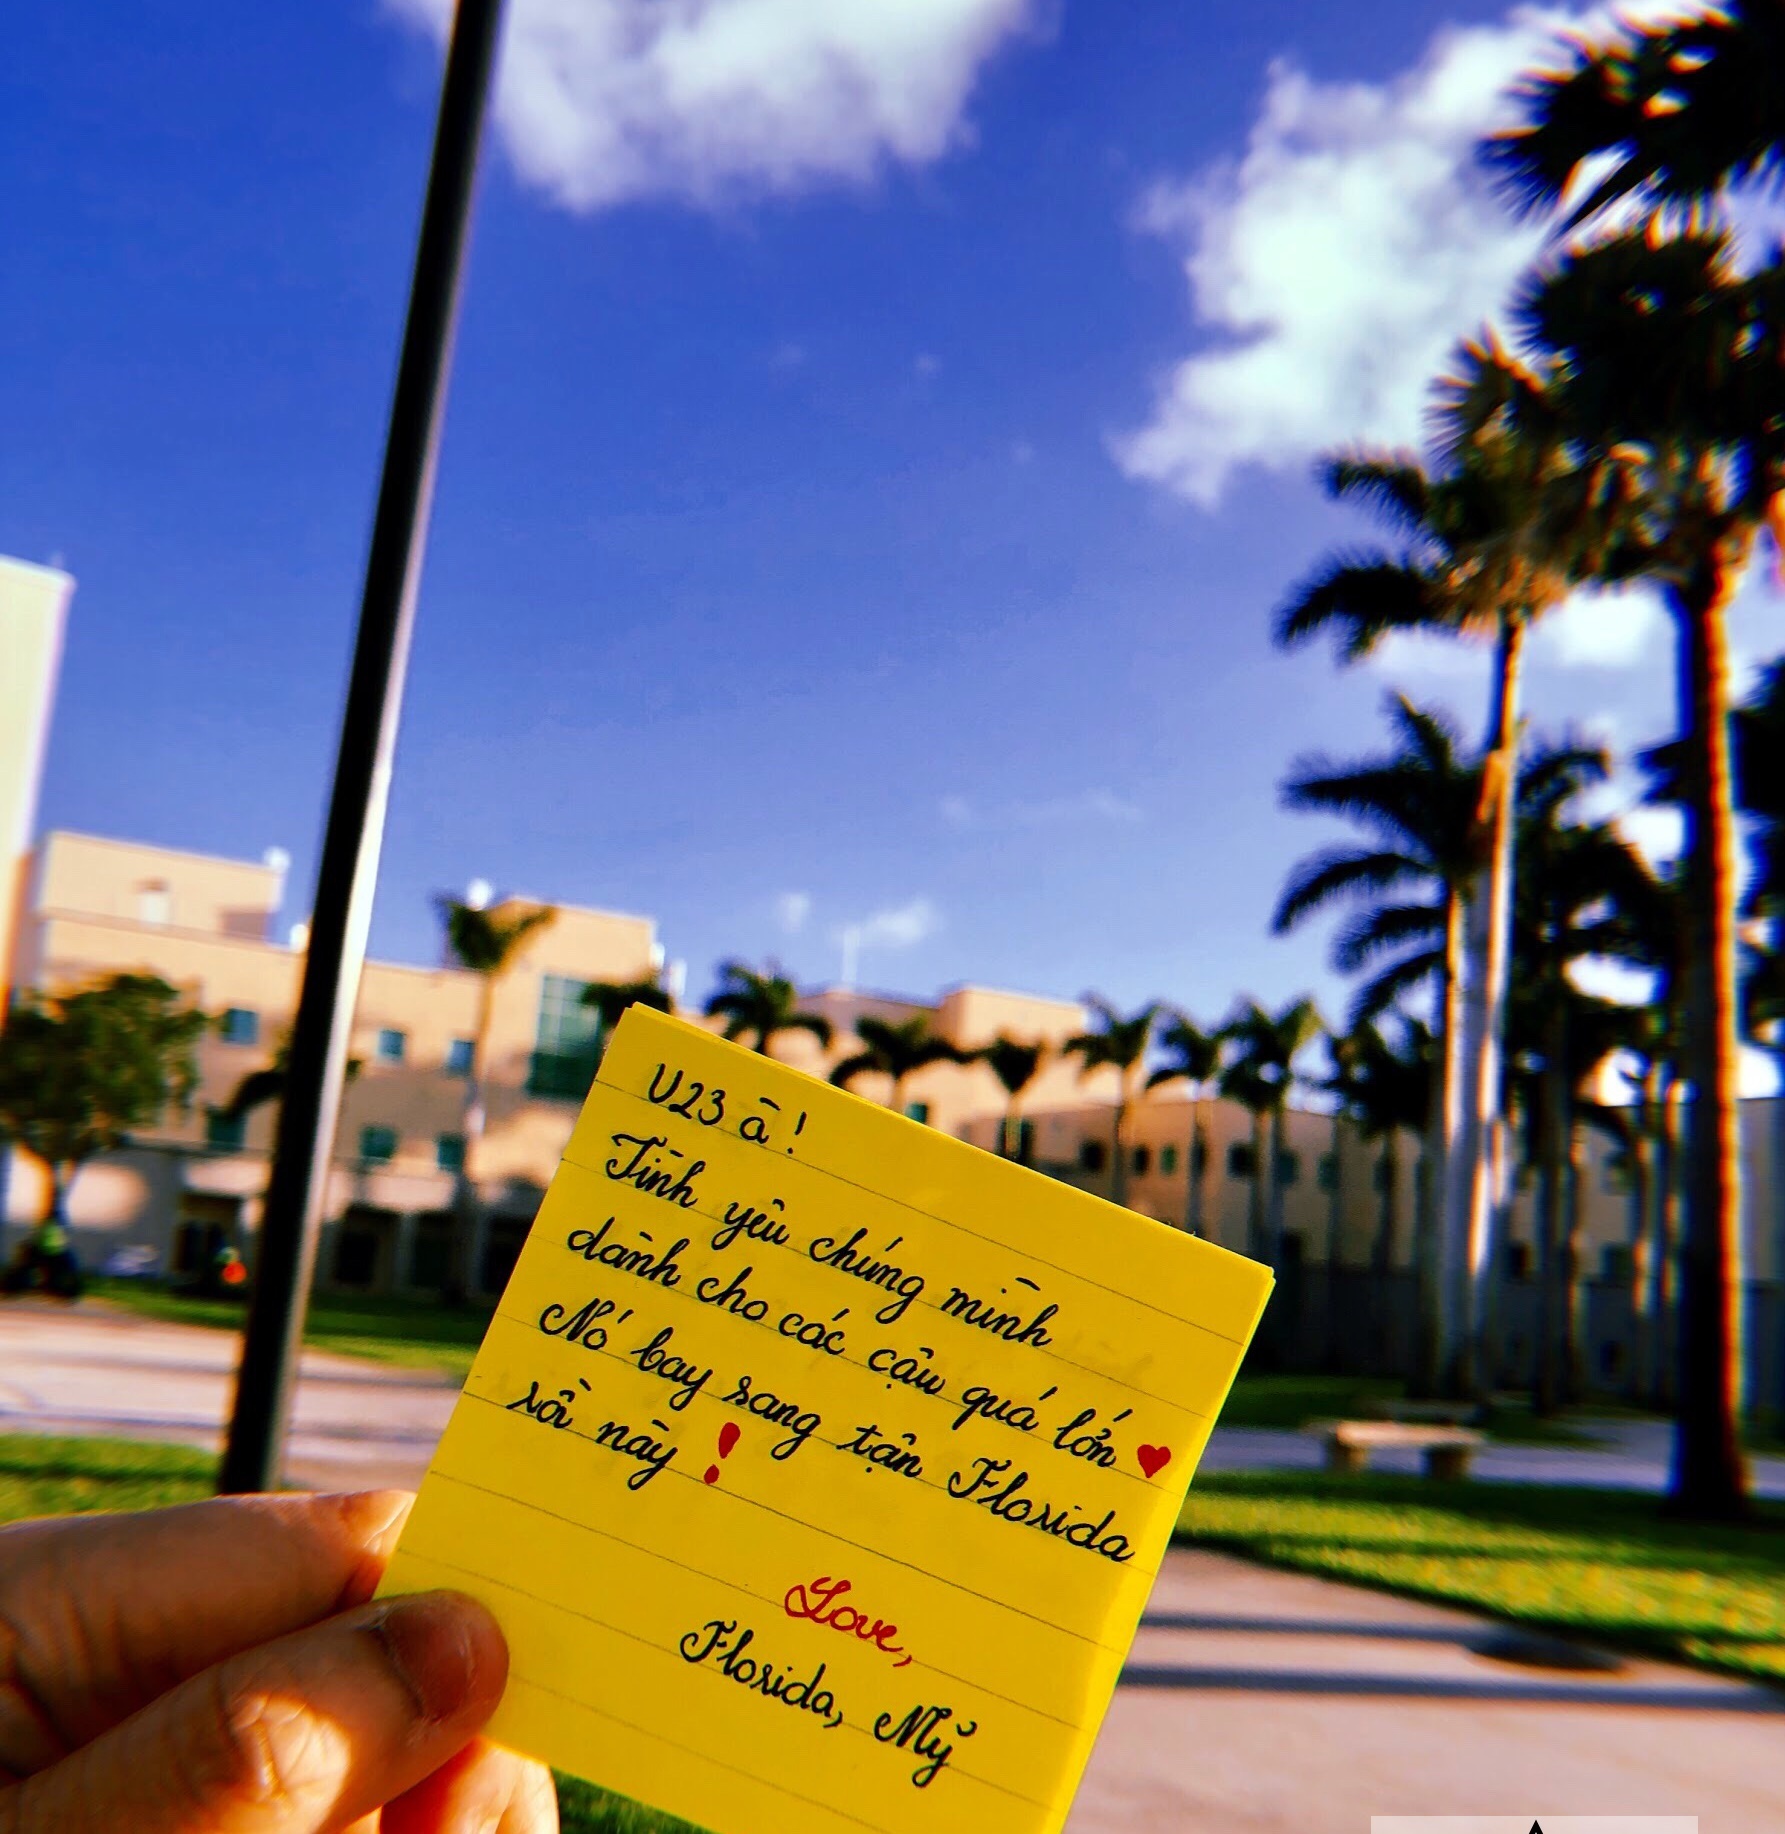 U23 à!
Tình yêu chúng mình
dành cho các cậu quá lớn ♥
Nó bay sang tận Florida
rồi này!
Love,
Florida, Mỹ